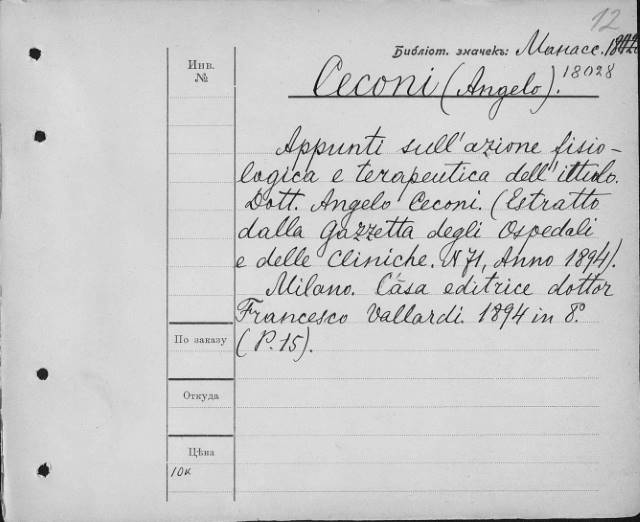 12
Библіот. значекъ: Манасс.
18028
Инв.
№
Ceconi (Angelo).
Appunti sull'azione fisio-
logica e terapeutica dell'ittiolo.
Dott. Angelo Ceconi. (Estratto
dalla Gazzetta degli Ospedali
e delle Cliniche. N 71, Anno 1894).
Milano. Casa editrice dottor
Francesco Vallardi. 1894 in 8º.
(P. 15).
По заказу
Откуда
Цѣна
10к